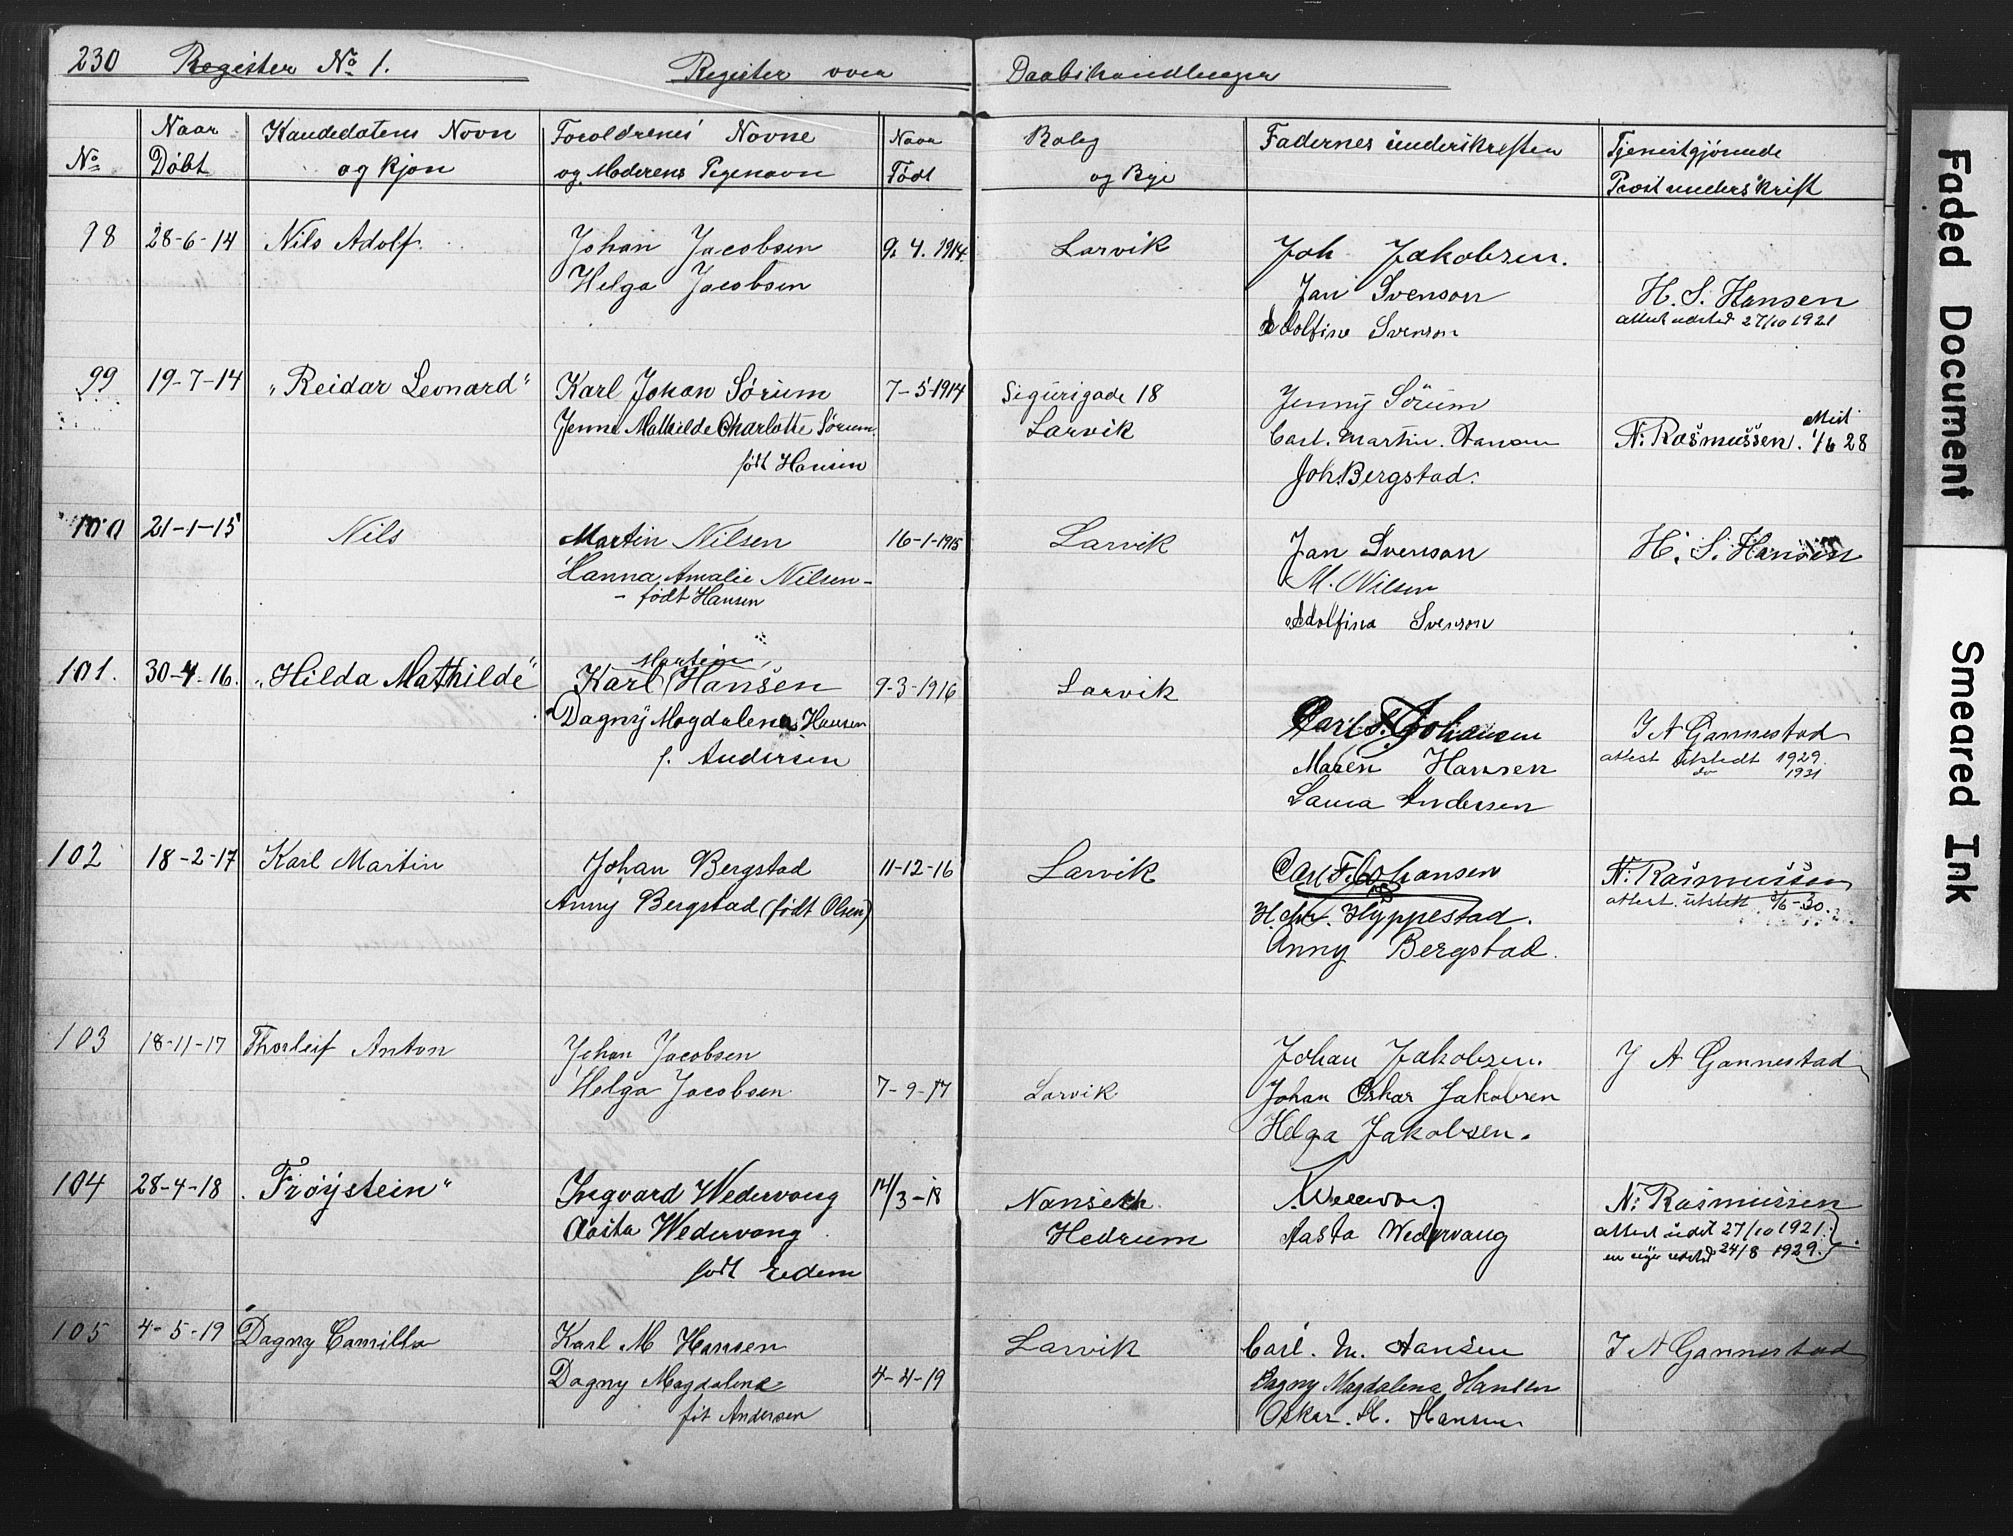 230 Register No 1. Register over Daabshandlinger
No Naar Døbt Kandedatens Navn og kjøn Foreldrenes Navne og Moderens Pigenavn Naar Født Bolig og Bye Fadernes underskriften Tjenestgjørende Præst underskrift
98 28-6-14 Nils Adolf. Johan Jacobsen 9. 4. 1914. Larvik Joh Jakobsen.
Helga Jacobsen Jan Svenson H. S. Hansen
Adolfine Svenson attest udsted 27/10 1921
99 19-7-14 "Reidar Leonard" Karl Johan Sørum 7-5-1914 Sigurigade 18 Jenny Sørum
Jenni Mathilde Charlotte Sørum Larvik Carl. Martin. Hansen N: Rasmussen.
født Hansen Joh. Bergstad.
100 21-1-15 Nils Martin Nilsen 16-1-1915 Larvik Jan Svenson H. S. Hansen
Hanna Amalie Nilsen- M. Nilsen
- født Hansen Adolfina Svenson
Martin
101. 30-4-16. "Hilda Mathilde" Karl Hansen 9-3-1916 Larvik
Dagny Magdalena Hansen Carl F. Johansen J A Gannestad
f. Andersen Maren Hansen attest utstedt 1929
do 1931
Laura Andersen
102 18-2-17 Karl Martin Johan Bergstad 11-12-16 Larvik Carl F. Johansen N: Rasmussen
Anny Bergstad (født Olsen) H. Chr. Hyppestad. attest. utstett 3/6-30.
Anny Bergstad.
103 18-11-17 Thorleif Anton Johan Jacobsen Johan Jakobsen. J A Gannestad
Helga Jacobsen 7-9-17 Larvik Johan Oskar Jakobsen
Helga Jakobsen.
104 28-4-18 "Frøystein" Ingvard Wedervang 14/3-18 Nanseth N: Rasmussen
Aasta Wedervang Hedrum Aasta Wedervang attest udst 27/10 1921.
født Eidem en nye udsted 24/8 1929.
105 4-5-19 Dagny Camilla Karl M Hansen Larvik Carl. M. Hansen J A Gannestad
Dagny Magdalene 4-4-19 Dagny Magdalena Hansen
føt Andersen Oskar. H. Hansen
Faded Document
Smeared Ink